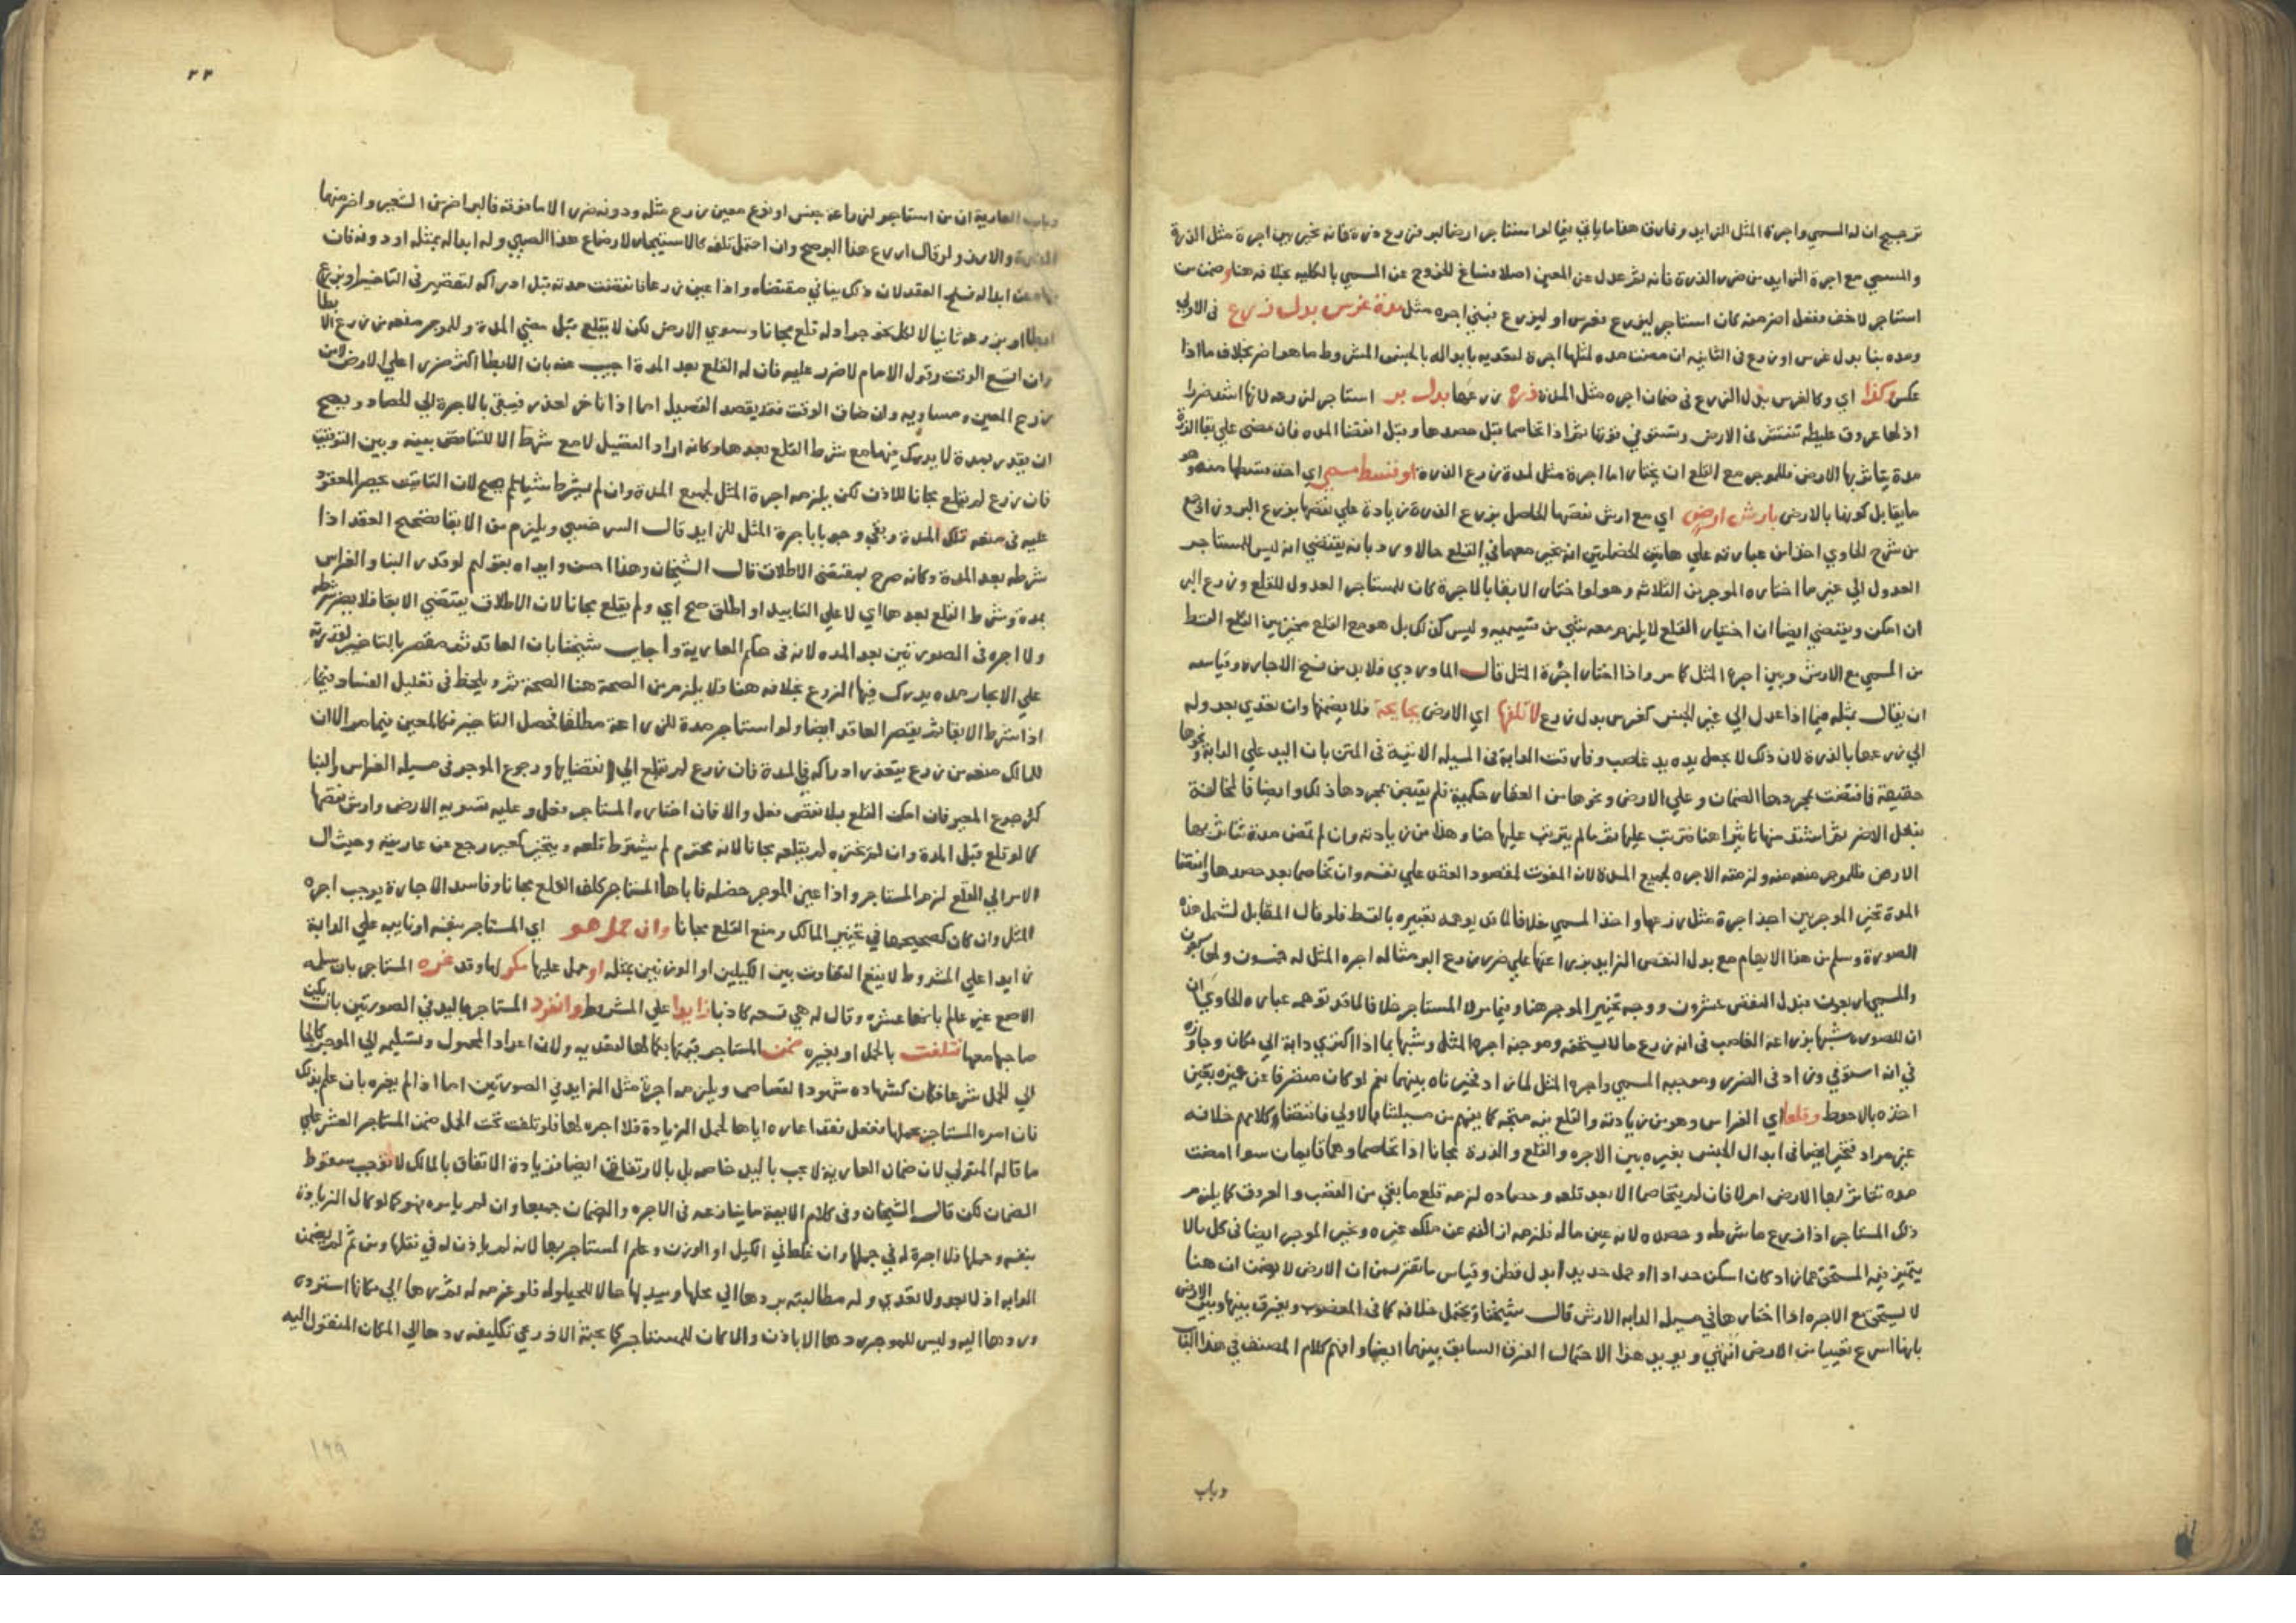 ترجيح ان له المسمي واجرة المثل الزايد وفارق هذا ما ياتي فيما لو استاجر ارضا لبر فزرع ذرة فانه يخير بين اجرة مثل الذرة
والمسمي مع اجرة الزايد من ضرر الذرة فانه لم يعدل عن المعين اصلا فساغ الخروج عن المسمي بالكلية بخلافه هنا وضمن من
استاجر لاخف ففعل اضر منه كان استاجر ليزرع فغرس او ليزرع فبني اجره مثل مدة غرس بدل زرع في الاولي
ومده بنا بدل غرس او زرع في الثانيه ان مضت مده لمثلها اجرة لتعديه بابداله بالجنس المشروط ما هو اضر بخلاف ما اذا
عكس وكذا اي وكالغرس بدل الزرع في ضمان اجره مثل المدة ذرة زرعها بدل بر استاجر لزرعه لانها اشد ضررا
اذ لها عروق غليظه تنتشر في الارض وتستوفي قوتها ثم اذا تخاصما قبل حصدها وقبل انقضا المده فان مضي علي بقا الذرة
مدة يتاثر بها الارض فللموجر مع القلع ان يختار اما اجرة مثل لمدة زرع الذرة او قسط مسمي اي اخذ قسطها منه وهو
ما يقابل كونها بالارض بارش ارض اي مع ارش نقصها الحاصل بزرع الذرة زيادة علي نقصها بزرع البر
من شرح الحاوي اخذا من عبارته علي هاتين الخصلتين انه يخير معهما في القلع حالا ورد بانه يقتضي انه ليس للمستاجر
العدول الي غير ما اختاره الموجر من الثلاثه وهو لو اختار الابقا بالاجرة كان للمستاجر العدول للقلع وزرع البر
ان امكن ويقتضي ايضا ان اختيار القلع لا يلزم معه شي من قسيميه وليس كذلك بل هو مع القلع مخير بين القلع القسط
من المسمي مع الارش وبين اجرة المثل كما مر واذا اختار اجرة المثل قال الماوردي فلا بد من فسخ الاجارة وقياسه
ان يقال بمثله فيما اذا عدل الي غير الجنس كغرس بدل زرع لا تلفها اي الارض بجايحة فلا يضمنها وان تعدي بعدوله
الي زرعها بالذرة لان ذلك لا يجعل يده يد غاصب وفارقت الدابة في المسيله الاتية في المتن بان اليد علي الدابة ونحوها
حقيقة فاقتضت بمجردها الضمان وعلي الارض ونحوها من العقار حكمية فلم يقتض بمجردها ذلك وايضا فالمخالفة
بنعل الاضر ثم اشد منها تاثيرا هنا فترتب عليها ثم ما لم يترتب عليها هنا وهذا من زيادته وان لم تمض مدة تتاثر بها
الارض فللموجر منعه منه ولزمته الاجره لجميع المدة لانه المفوت لمقصود العقد علي نفسه وان تخاصما بعد حصدها وانقضا
المدة تخير الموجر بين اخذ اجرة مثل زرعها واخذ المسمي خلافا لما قد يوهمه تعبيره بالقسط فلو قال المقابل لشمل هذه
الصورة وسلم من هذا الايهام مع بدل النقص الزايد بزراعتها علي ضرر زرع البر مثاله اجره المثل له خمسون ولها سبعون
والمسمي اربعون فبدل النقص عشرون ووجه تخيير الموجر هنا وفيما مر لا المستاجر خلافا لما قد توهمه عباره الحاوي ان
ان للصوره شبها بزراعة الغاصب في انه زرع ما لا يستحقه وموجبه اجرة المثل وشبها بما اذا اكتري دابة الي مكان وجاوزه
في انه استوفي وزاد في الضرر وموجبه المسمي واجرة المثل لما زاد فخيرناه بينهما نعم لو كان متصرفا عن غيره تعين
اخذه بالاحوط وقلعا اي الغراس وهو من زيادته والقلع فيه متجه كما يفهم من مسيلتنا بالاولي فاقتضا وكلامهم خلافه
غير مراد فتخير ايضا في ابدال الجنس بغيره بين الاجره والقلع والذرة مجانا اذا تخاصما وهما قايمان سوا امضت
مده تتاثر بها الارض ام لا فان لم يتخاصما الا بعد قلعه وحصاده لزمه قلع ما بقي من القضب والعروق كما يلزم
ذلك المستاجر اذا زرع ما شرطه وحصده لانه عين ماله فلزمه ازالته عن ملك غيره وتخير الموجر ايضا في كل ما لا
يتميز فيه المستحق عما زاد كان اسكن حدادا او حمل حديدا بدل قطن وقياس ما تقرر من ان الارض لا تضمن ان هنا
لا يستحق مع الاجره اذا اختارها في مسيله الدابه الارش قال شيخنا ويحتمل خلافه كما في المغصوب ويفرق بينها وبين الارض
بانها اسرع تعيبا من الارض انتهي ويويد هذا الاحتمال الفرق السابق بينهما ايضا وافهم كلام المصنف في هذا الباب
وباب
٢٢
وباب العارية ان من استاجر لزراعة جنس او نوع معين زرع مثله ودونه ضررا لا ما فوقه فالبر اضر من الشعير واضر منهما
الذرة والارز ولو قال ازرع هذا البر صح وان احتمل تلفه كالاستيجار لارضاع هذا الصبي وله ابداله بمثله او دونه فان
نهاه عن ابداله فسد العقد لان ذلك ينافي مقتضاه واذا عين زرعا فانقضت مدته قبل ادراكه لتقصير في التاخير او بزرع
ابطا او بزرعه ثانيا لا لكل نحو جراد له قلع مجانا وتسوي الارض لكن لا يقلع قبل مضي المدة وللموجر منعه من زرع الابطا
وان اتسع الوقت وقول الامام لا ضرر عليه فان له القلع بعد المدة اجيب عنه بان الابطا اكثر ضررا علي الارض لا من
زرع المعين ومساويه وان ضاق الوقت فقد يقصد القصيل اما اذا تاخر لعذر فيبقي بالاجرة الي الحصاد ويصح
ان يقدر بمدة لا يدرك فيها مع شرط القلع بعدها وكانه اراد القصيل لا مع شرط الا للتناقض بينه وبين التوقيت
فان زرع لم يقلع مجانا للاذن لكن يلزمه اجرة المثل لجميع المدة وان لم يشرط شيا لم يصح لان التاقيت يحصر المعقود
عليه في منفعه تلك المدة وبقي وجوبا باجرة المثل للزايد قال السرخسي ويلزم من الابقا تصحيح العقد اذا
شرطه بعد المدة وكانه صرح بمقتضي الاطلاق قال الشيخان وهذا احسن وايداه بقولهم لو قدر البنا والغراس
بمدة وشرط القلع بعدها اي لا علي التابيد او اطلق صح اي ولم يقلع مجانا لان الاطلاق يقتضي الابقا فلا يضر شرطه
ولا اجره في الصورتين بعد المده لانه في حكم العارية واجاب شيخنا بان العاقد ثمه مقصر بالتاخير لقدرته
علي الايجار مده يدرك فيها الزرع بخلافه هنا فلا يلزم من الصحة هنا الصحة ثم
اذا شرط الابقا ثم بتقصير العاقد ايضا ولو استاجر مدة للزراعة مطلقا فحصل التاخير فكالمعين فيما مر الا ان
للمالك منعه من زرع يتعذر ادراكه في المدة فان زرع لم يقلع الي انقضايها ورجوع الموجر في مسيله الغراس والبنا
كرجوع المعير فان امكن القلع بلا نقص فعل والا فان اختاره المستاجر فعل وعليه تسويه الارض وارش نقصها
كما لو قلع قبل المدة وان لم يختره لم يقلعه مجانا لانه محترم لم يشترط قلعه ويتخير كمعير رجع عن عاريته وحيث ال
الامر الي القلع لزم المستاجر واذا عين الموجر خصله فاباها المستاجر كلف القلع مجانا وفاسد الاجارة يوجب اجرة
المثل وان كان كصحيحها في تخيير المالك ومنع القلع مجانا وان حمل هو اي المستاجر بنفسه او نايبه علي الدابة
زايدا علي المشروط لا يقع التفاوت بين الكيلين او الوزنين بمثله او حمل عليها مكر لها وقد غره المستاجر بان سلمه
الاصع غير عالم بانها عشره وقال له هي تسعه كاذبا زايدا علي المشروط وانفرد المستاجر باليد في الصورتين بان لم يكن
صاحبها معها فتلفت بالحمل او بغيره ضمن المستاجر قيمتها بكمالها لتعديه ولان اعداد المحمول وتسليمه الي الموجر كالجا
الي الحمل شرعا فكان كشهاده شهود القصاص ويلزمه اجرة مثل الزايد في الصورتين اما اذا لم يغره بان علم بذلك
فان امره المستاجر بحملها ففعل فقد اعاره اياها لحمل الزيادة فلا اجره لها فلو تلفت تحت الحمل ضمن المستاجر العشر علي
ما قاله المتولي لان ضمان العارية لا يجب باليد خاصه بل بالارتفاق ايضا فزيادة الارتفاق بالمالك لا توجب سقوط
الضمان لكن قال الشيخان وفي كلام الايمة ما ينازعه في الاجره والضمان جميعا وان لم يامره فهو كما لو كال الزيادة
بنفسه وحملها فلا اجرة له في حملها وان غلط في الكيل او الوزن وعلم المستاجر بها لانه لم ياذن له في نقلها ومن ثم لم يضمن
الدابه اذ لا يد ولا تعدي وله مطالبته بردها الي محلها وببدلها حالا للحيلولة فلو غرمه له ثم ردها الي مكانها استرده
وردها اليه وليس للموجر ردها الا باذن والا كان للمستاجر كما بحثه الاذرعي تكليفه ردها الي المكان المنقول اليه
١٩٩